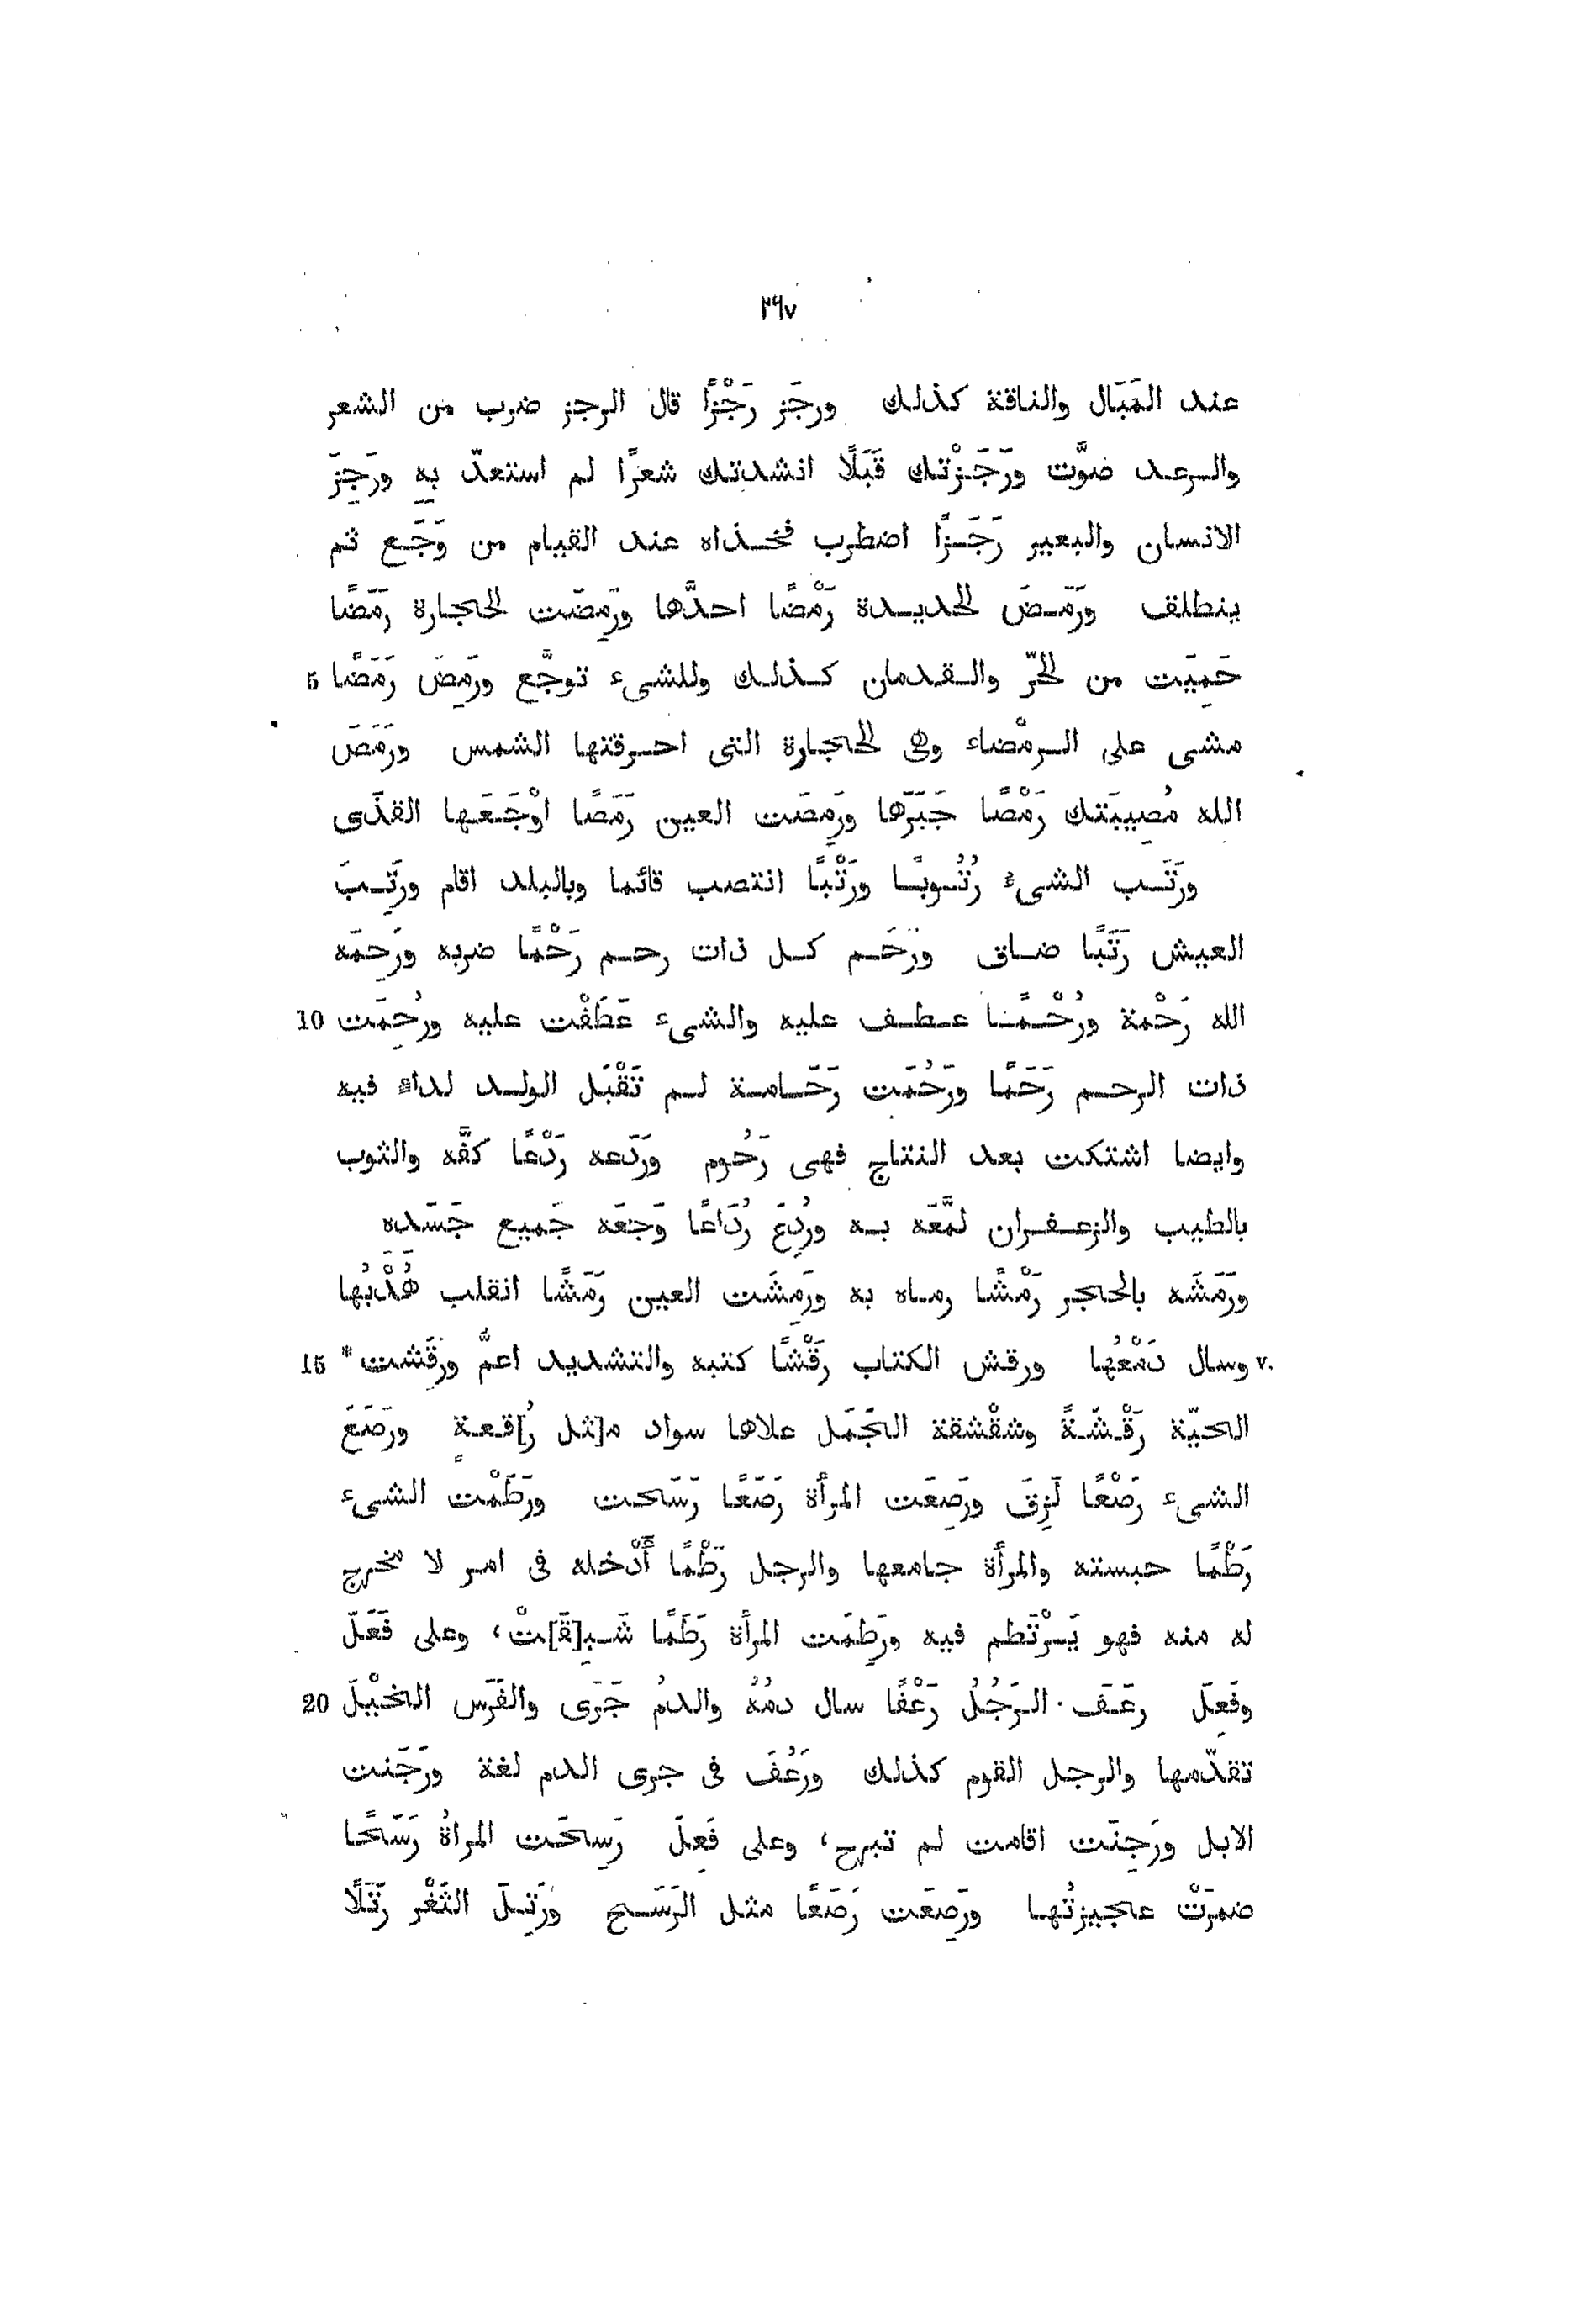 ٢٦٧
عند المَبَال والناقة كذلك ورجَز رَجْزًا قال الرجز ضرب من الشعر
والرعد صَوَّت ورَجَزْتك قَبَلًا انشدتك شعرًا لم استعدّ بِهِ ورَجِزَ
الانسان والبعير رَجَزًا اضطرب فخذاه عند القيام من وَجَع ثم
ينطلق ورَمَضَ الحديدة رَمْضًا احدَّها ورَمِضَت الحجارة رَمَضًا
5 حَمِيَت من الحَرّ والقدمان كذلك وللشىء توجَّع ورَمِضَ رَمَضًا
مشى على الرمْضاء وهى الحجارة التى احرقتها الشمس ورَمَضَ
الله مُصِيبَتك رَمْضًا جَبَرَها ورَمِضَت العين رَمَضًا اوْجَعَها القَذَى
ورَتَب الشىءُ رُتُوبًا ورَتْبًا انتصب قائما وبالبلد اقام ورَتِبَ
العيش رَتَبًا ضاق ورَحَم كل ذات رحم رَحْمًا ضربه ورَحِمَه
10 الله رَحْمة ورُحْمًا عطف عليه والشىء عَطَفْت عليه ورُحِمَت
ذات الرحم رَحَمًا ورَحُمَت رَحَامة لم تَقْبَل الولد لداءٍ فيه
وايضا اشتكت بعد النتاج فهى رَحُوم ورَدَعه رَدْعًا كفَّه والثوب
بالطيب والزعفران لمَّعَه به ورُدِعَ رُدَاعًا وَجَعَه جَميع جَسَده
ورَمَشَه بالحجر رَمْشًا رماه به ورَمِشَت العين رَمَشًا انقلب هُدْبُها
15 ٧٠ وسال دَمْعُها ورقش الكتاب رَقْشًا كتبه والتشديد اعمَّ ورَقِشت *
الحيّة رَقْشَةً وشقْشقة الجَمَل علاها سواد م[ثل رُ]قعةٍ ورَصَعَ
الشىء رَصْعًا لَزِقَ ورَصِعَت المرأة رَصَعًا رَسَحت ورَطَمْت الشىء
رَطْمًا حبسته والمرأة جامعها والرجل رَطْمًا أَدْخله فى امر لا مخرج
له منه فهو يَرْتَطم فيه ورَطِمَت المرأة رَطَمًا شَبِ[قَ]تْ، وعلى فَعَلَ
20 وفَعِلَ رعَف الرَجُلُ رَعْفًا سال دمُهُ والدمُ جَرَى والفَرَس الخَيْلَ
تقدّمها والرجل القوم كذلك ورَعُفَ فى جرى الدم لغة ورَجَنت
الابل ورَجِنَت اقامت لم تبرح، وعلى فَعِلَ رَسِحَت المراةُ رَسَحًا
ضمرَتْ عجيزتُها ورَصِعَت رَصَعًا مثل الرَسَح ورَتِلَ الثَغْر رَتَلًا